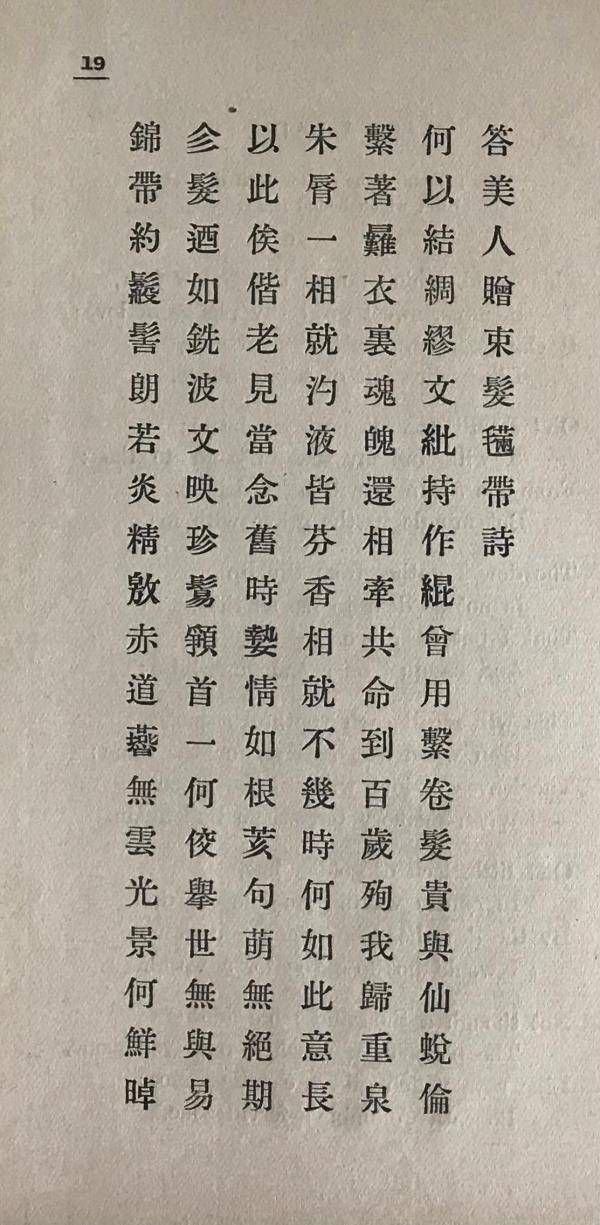 19
答美人贈束髮帶詩
何以結綢繆文紕持作緄曾用繫卷髮貴與仙蛻倫
繫著衣裏魂魄還相牽共命到百歲殉我歸重泉
朱脣一相就汋液皆芬香相就不幾時何如此意長
以此俟偕老見當念舊時情如根荄句萌無絕期
㐱髮迺如銑波文映珍首一何佼舉世無與易
錦帶約髻朗若炎精敫赤道無雲光景何鮮晫